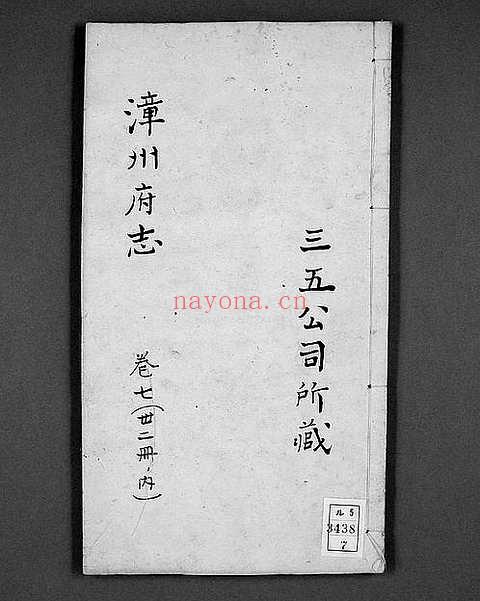 漳州府志
卷七(丗二冊ノ内)
三五公司所藏
nayona.cn
ル5
3438
7